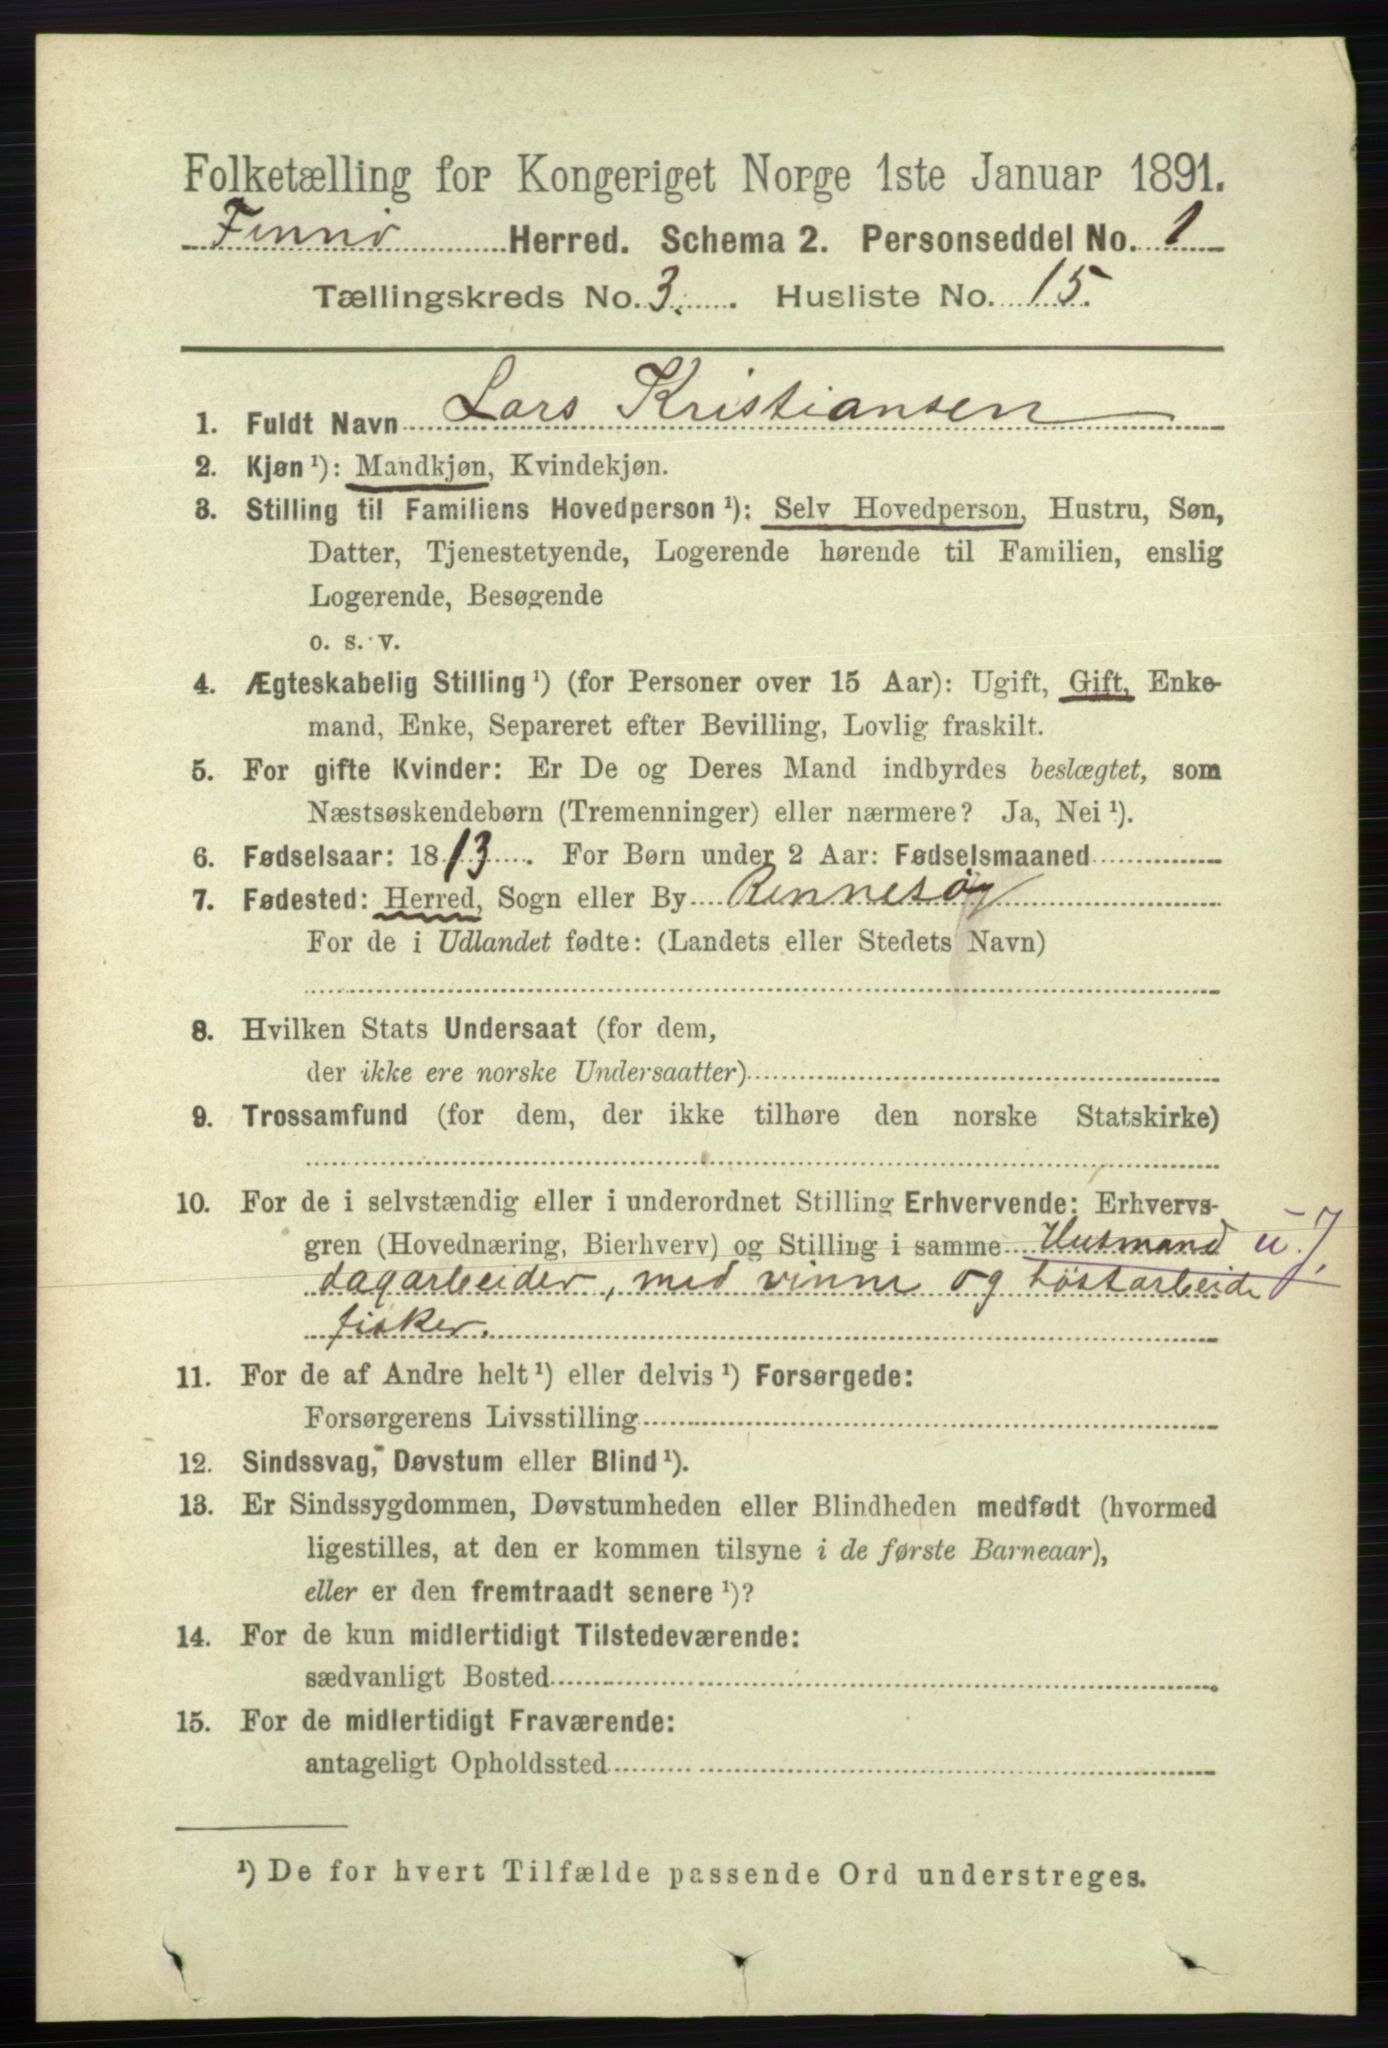 Folketælling for Kongeriget Norge 1ste Januar 1891.
Finnø Herred. Schema 2. Personseddel No. 1
Tællingskreds No. 3. Husliste No. 15.
1. Fuldt Navn Lars Kristiansen
2. Kjøn ¹): Mandkjøn, Kvindekjøn.
3. Stilling til Familiens Hovedperson ¹): Selv Hovedperson, Hustru, Søn,
Datter, Tjenestetyende, Logerende hørende til Familien, enslig
Logerende, Besøgende
o. s. v.
4. Ægteskabelig Stilling ¹) (for Personer over 15 Aar): Ugift, Gift, Enke-
mand, Enke, Separeret efter Bevilling, Lovlig fraskilt.
5. For gifte Kvinder: Er De og Deres Mand indbyrdes beslægtet, som
Næstsøskendebørn (Tremenninger) eller nærmere? Ja, Nei ¹).
6. Fødselsaar: 1813. For Børn under 2 Aar: Fødselsmaaned
7. Fødested: Herred, Sogn eller By Rennesøy
For de i Udlandet fødte: (Landets eller Stedets Navn)
8. Hvilken Stats Undersaat (for dem,
der ikke ere norske Undersaatter)
9. Trossamfund (for dem, der ikke tilhøre den norske Statskirke)
10. For de i selvstændig eller i underordnet Stilling Erhvervende: Erhvervs-
gren (Hovednæring, Bierhverv) og Stilling i samme Husmand u. J.
dagarbeider, med vinne og høstarbeide
fisker.
11. For de af Andre helt ¹) eller delvis ¹) Forsørgede:
Forsørgerens Livsstilling
12. Sindssvag, Døvstum eller Blind ¹).
13. Er Sindssygdommen, Døvstumheden eller Blindheden medfødt (hvormed
ligestilles, at den er kommen tilsyne i de første Barneaar),
eller er den fremtraadt senere ¹)?
14. For de kun midlertidigt Tilstedeværende:
sædvanligt Bosted
15. For de midlertidigt Fraværende:
antageligt Opholdssted
¹) De for hvert Tilfælde passende Ord understreges.